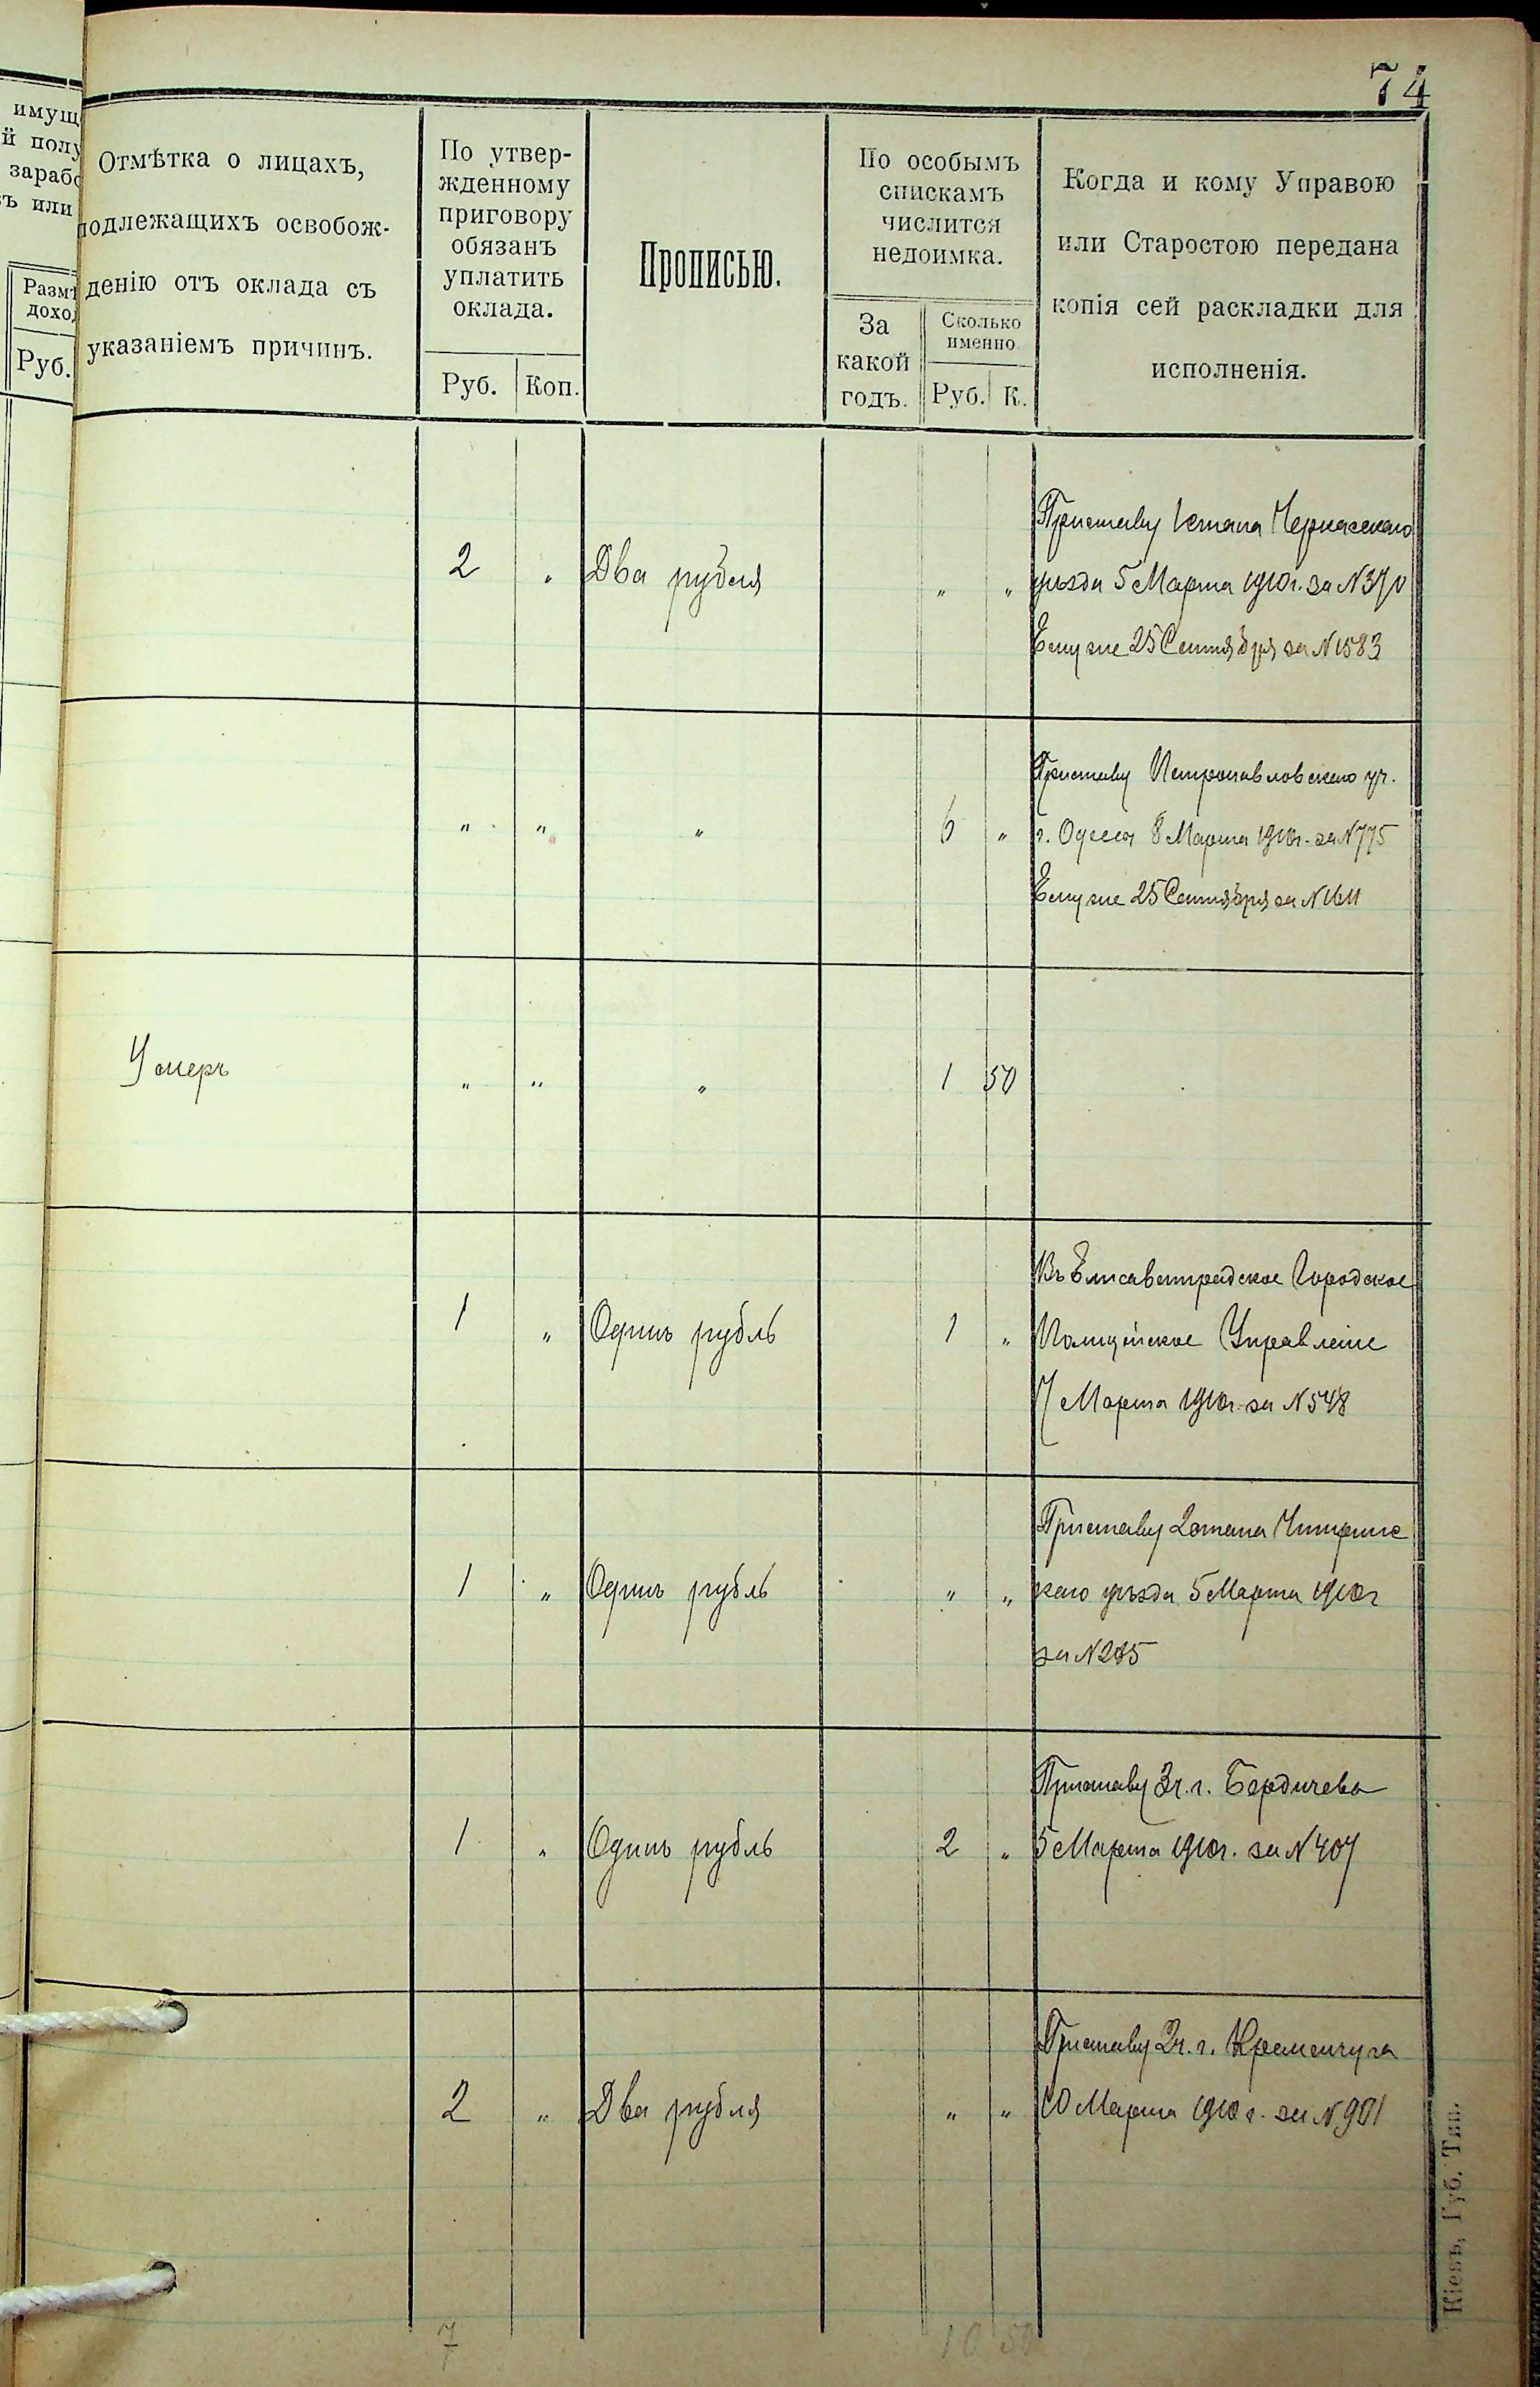 74
имущ
й полу
зарабо
ъ или
Разм
доход
Руб.
Отмѣтка о лицахъ,
подлежащихъ освобож-
денію отъ оклада съ
указаніемъ причинъ.
По утвер-
жденному
приговору
обязанъ
уплатить
оклада.
Руб. Коп.
Прописью.
По особымъ
спискамъ
числится
недоимка.
За
какой
годъ.
Сколько
именно
Руб. К.
Когда и кому Управою
или Старостою передана
копія сей раскладки для
исполненія.
2 " Два рубля " "
Приставу 1 стана Черкасскаго
уѣзда 5 Марта 1910г. за N 370
Ему же 25 Сентября за N 1583
" " " 6 "
Приставу Петропавловскаго уч.
г. Одесса 8 Марта 1910г. за N 775
Ему же 25 Сентября за N 1611
Умеръ " " " 1 50
1 " Одинъ рубль 1 "
Въ Елисаветградское Городское
Полицейское Управленіе
7 Марта 1910г. за N 548
1 " Одинъ рубль " "
Приставу 2 стана Чигиринс
каго уѣзда 5 Марта 1910г
за N 285
1 " Одинъ рубль 2 "
Приставу 3 ч. г. Бердичева
5 Марта 1910г. за N 407
2 " Два рубля " "
Приставу 2 ч. г. Кременчуга
10 Марта 1910 г. за N 901
7 10 50
Кіевъ, Губ. Тип.